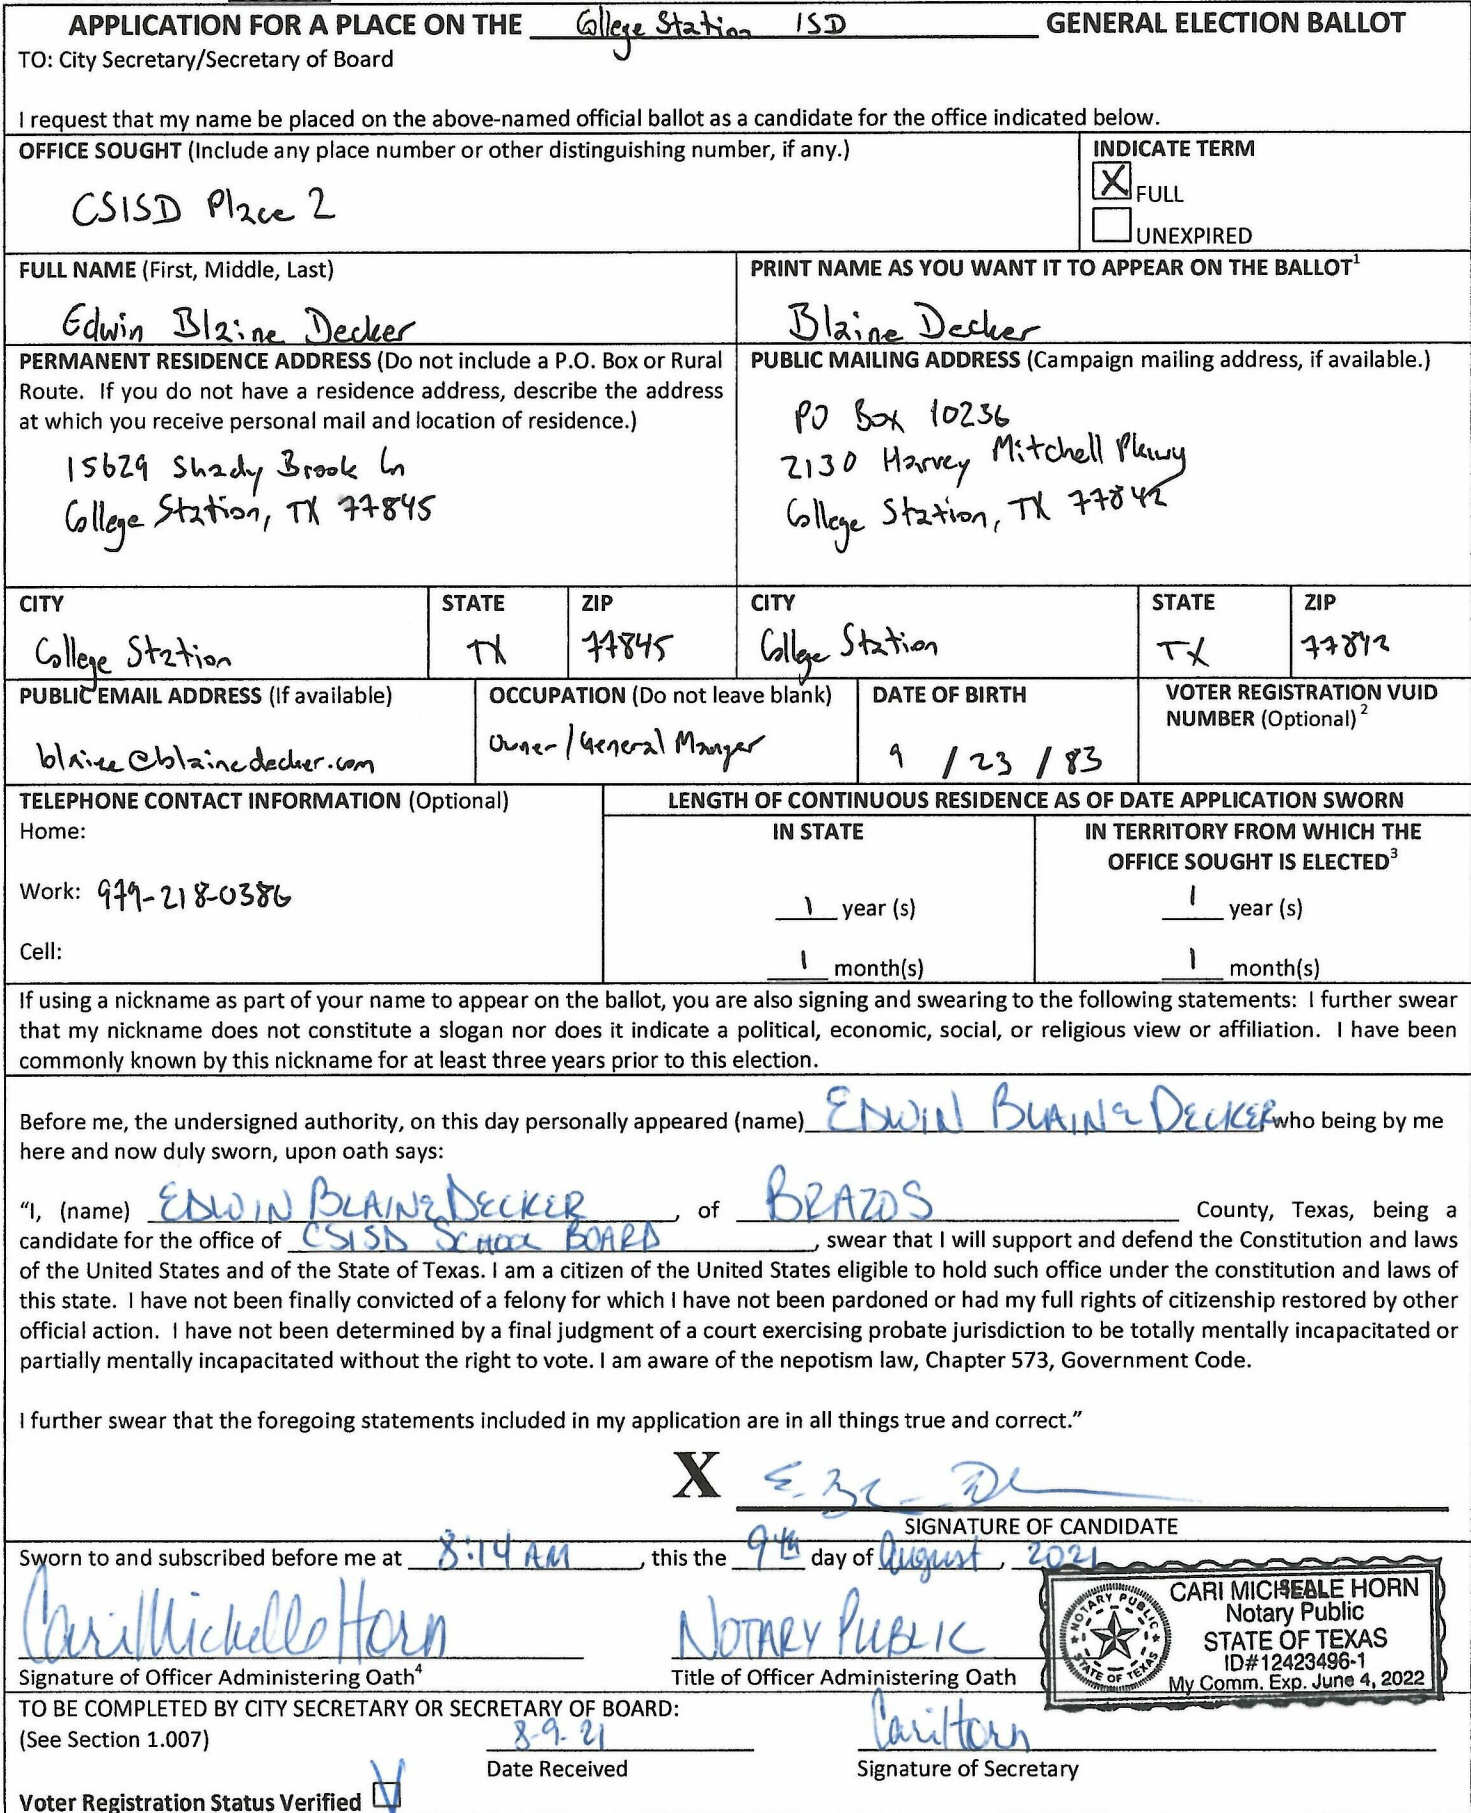 APPLICATION FOR A PLACE ON THE College Station ISD GENERAL ELECTION BALLOT
TO: City Secretary/Secretary of Board
I request that my name be placed on the above-named official ballot as a candidate for the office indicated below.
OFFICE SOUGHT (Include any place number or other distinguishing number, if any.)
CSISD Place 2
INDICATE TERM
X FULL
UNEXPIRED
FULL NAME (First, Middle, Last)
Edwin Blaine Decker
PRINT NAME AS YOU WANT IT TO APPEAR ON THE BALLOT1
Blaine Decker
PERMANENT RESIDENCE ADDRESS (Do not include a P.O. Box or Rural
Route. If you do not have a residence address, describe the address
at which you receive personal mail and location of residence.)
15629 Shady Brook Ln
College Station, TX 77845
PUBLIC MAILING ADDRESS (Campaign mailing address, if available.)
PO Box 10236
2130 Harvey Mitchell Pkwy
College Station, TX 77842
CITY
College Station
STATE
TX
ZIP
77845
CITY
College Station
STATE
TX
ZIP
77842
PUBLIC EMAIL ADDRESS (If available)
blaine@blainedecker.com
OCCUPATION (Do not leave blank)
Owner/General Manger
DATE OF BIRTH
9 / 23 / 83
VOTER REGISTRATION VUID
NUMBER (Optional) 2
TELEPHONE CONTACT INFORMATION (Optional)
Home:
Work: 979-218-0386
Cell:
LENGTH OF CONTINUOUS RESIDENCE AS OF DATE APPLICATION SWORN
IN STATE
1 year (s)
1 month(s)
IN TERRITORY FROM WHICH THE
OFFICE SOUGHT IS ELECTED3
1 year (s)
1 month(s)
If using a nickname as part of your name to appear on the ballot, you are also signing and swearing to the following statements: I further swear
that my nickname does not constitute a slogan nor does it indicate a political, economic, social, or religious view or affiliation. I have been
commonly known by this nickname for at least three years prior to this election.
Before me, the undersigned authority, on this day personally appeared (name) EDWIN BLAINE DECKER who being by me
here and now duly sworn, upon oath says:
"I, (name) EDWIN BLAINE DECKER, of BRAZOS County, Texas, being a
candidate for the office of CSISD SCHOOL BOARD, swear that I will support and defend the Constitution and laws
of the United States and of the State of Texas. I am a citizen of the United States eligible to hold such office under the constitution and laws of
this state. I have not been finally convicted of a felony for which I have not been pardoned or had my full rights of citizenship restored by other
official action. I have not been determined by a final judgment of a court exercising probate jurisdiction to be totally mentally incapacitated or
partially mentally incapacitated without the right to vote. I am aware of the nepotism law, Chapter 573, Government Code.
I further swear that the foregoing statements included in my application are in all things true and correct."
X
SIGNATURE OF CANDIDATE
Sworn to and subscribed before me at 8:14 AM, this the 9th day of August, 2021
Cari Michelle Horn
Signature of Officer Administering Oath4
NOTARY PUBLIC
Title of Officer Administering Oath
NOTARY PUBLIC
STATE OF TEXAS
CARI MICHEALE HORN
Notary Public
STATE OF TEXAS
ID#12423496-1
My Comm. Exp. June 4, 2022
SEAL
TO BE COMPLETED BY CITY SECRETARY OR SECRETARY OF BOARD:
(See Section 1.007)
8-9-21
Date Received
Cari Horn
Signature of Secretary
Voter Registration Status Verified